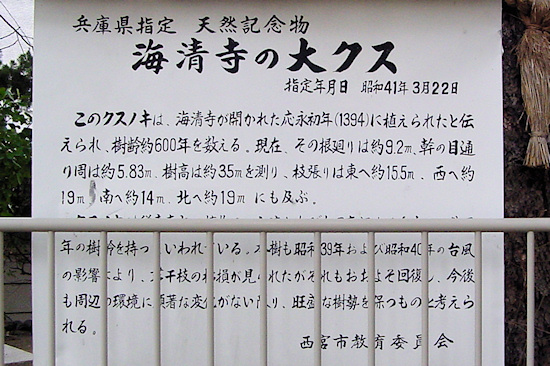 兵庫県指定 天然記念物
海清寺の大クス
指定年月日 昭和41年3月22日
このクスノキは、海清寺が開かれた応永初年(1394)に植えられたと伝
えられ、樹齢約600年を数える。現在、その根廻りは約9.2m、幹の目通
り周は約5.83m、樹高は約35mを測り、枝張りは東へ約15.5m、西へ約
19m、南へ約14m、北へ約19mにも及ぶ。
年の樹齢を持つ いわれている。 樹も昭和39年および昭和40年の台風
の影響により、 干枝の 損が見られたがそれもおおよそ回復し、今後
も周辺の環境に顕著な変化がない限り、旺盛な樹勢を保つものと考えら
れる。
西宮市教育委員会